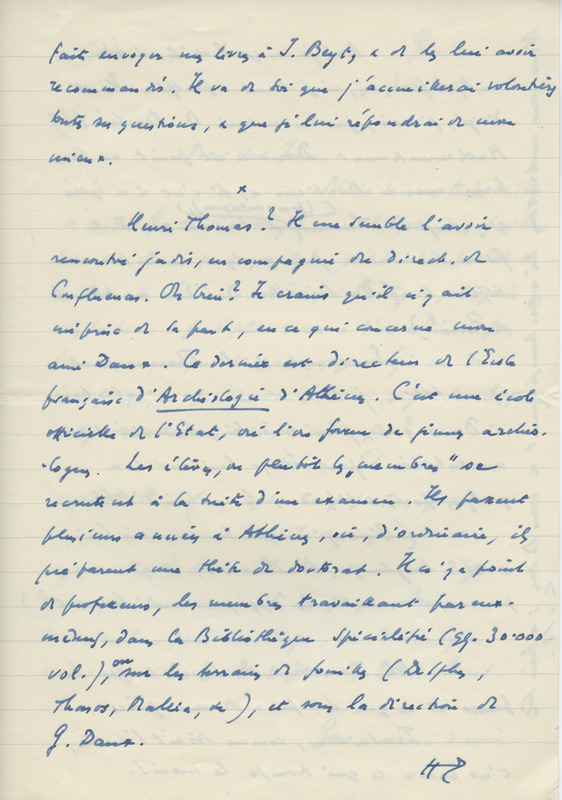 fait envoyer mes livres à J. Beyt, & de les lui avoir
recommandés. Il va de soi que j'accueillerai volontiers
toutes ses questions, & que je lui répondrai de mon
mieux.
*
Henri Thomas? Il me semble l'avoir
rencontré jadis, en compagnie du direct. de
Confluences. Où bien? Je crains qu'il n'y ait
méprise de sa part, en ce qui concerne mon
ami Daux. Ce dernier est directeur de l'Ecole
française d'Archéologie d'Athènes. C'est une école
officielle de l'Etat, où l'on forme de jeunes archéo-
-logues. Les élèves, ou plutôt les "membres" se
recrutent à la suite d'un examen. Ils passent
plusieurs années à Athènes, où, d'ordinaire, ils
préparent une thèse de doctorat. Il n'y a point
de professeurs, les membres travaillant par eux-
mêmes, dans la Bibliothèque spécialisée (qq. 30.000
vol.), ou sur les terrains de fouilles (Delphes,
Thasos, Mallia, etc), et sous la direction de
G. Daux.